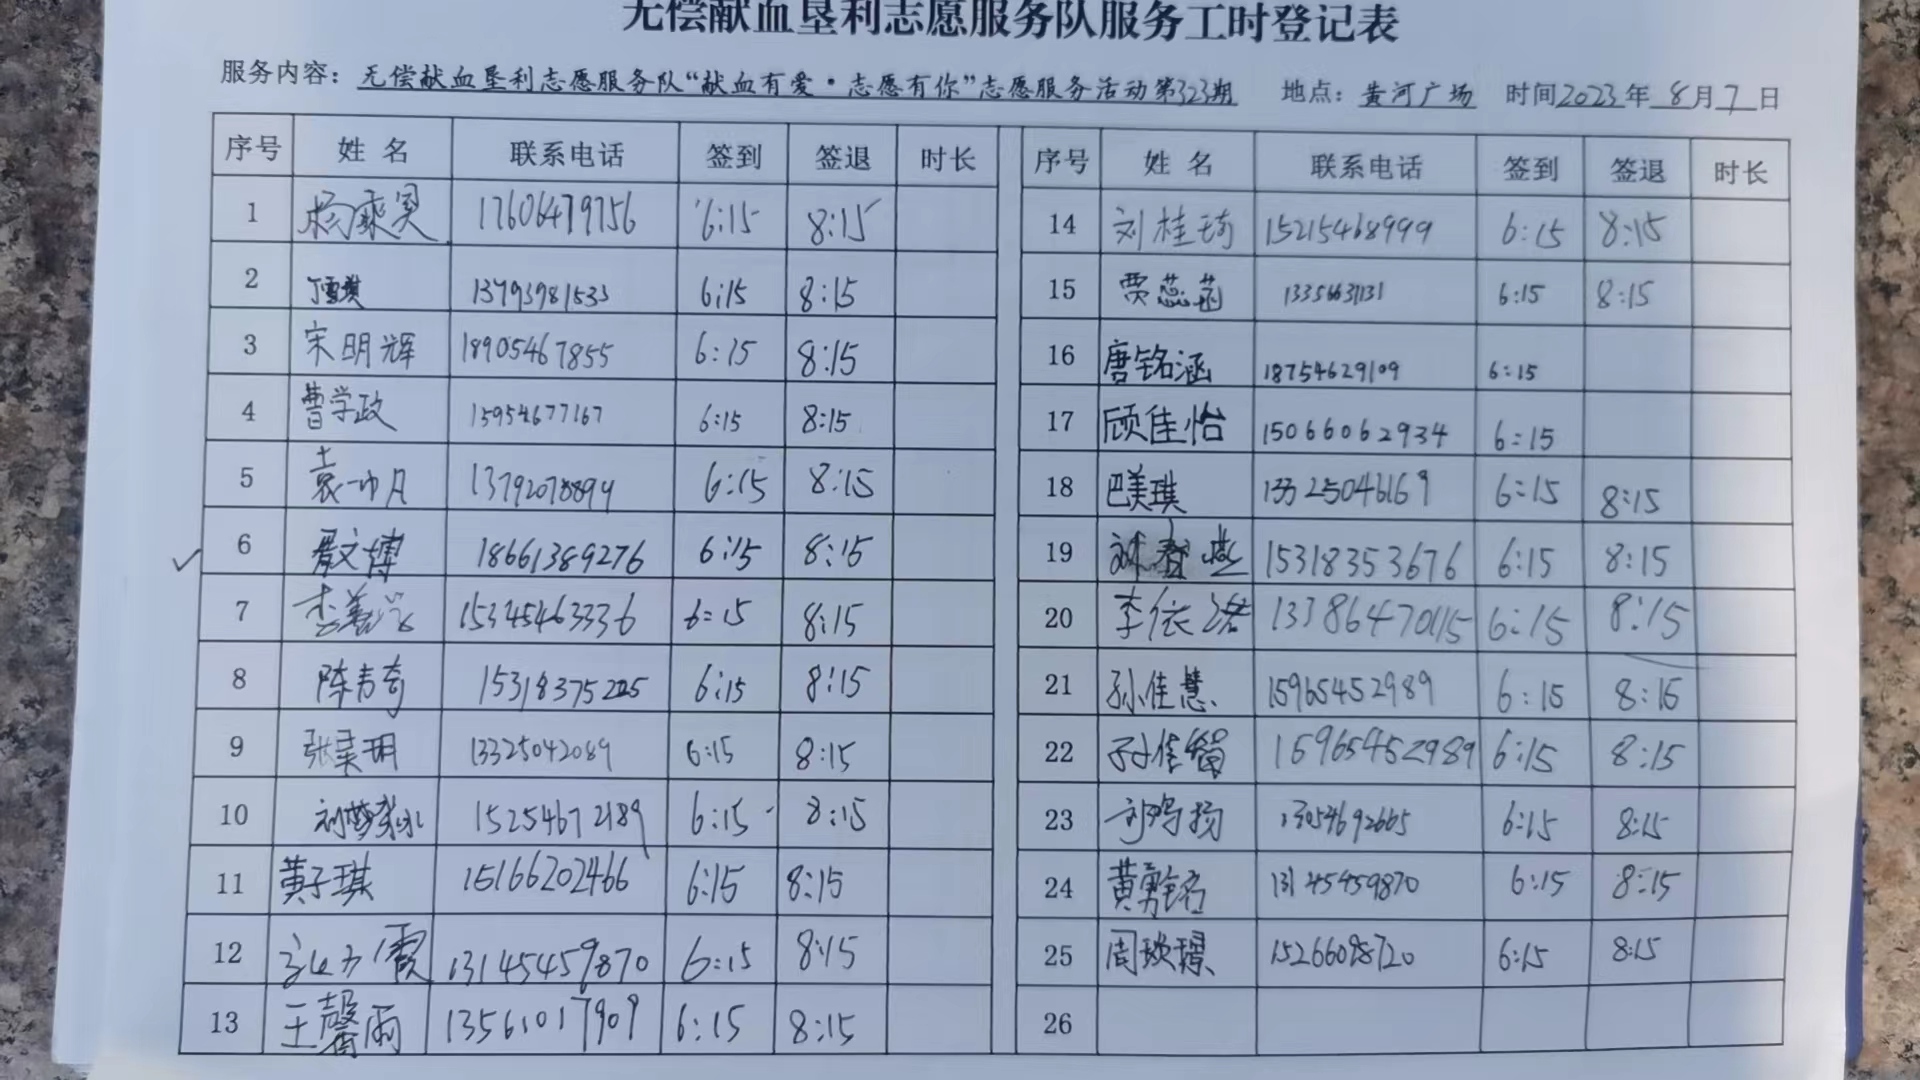 无偿献血垦利志愿服务队服务工时登记表
服务内容：无偿献血垦利志愿服务队“献血有爱·志愿有你”志愿服务活动第323期 地点：黄河广场 时间2023年8月7日
序号 姓名 联系电话 签到 签退 时长 序号 姓名 联系电话 签到 签退 时长
1 17606479756 6:15 8:15 14 刘桂琦 15215468999 6:15 8:15
2 丁雪琪 13793981533 6:15 8:15 15 贾蕊菡 13356631131 6:15 8:15
3 宋明辉 18905467855 6:15 8:15 16 唐铭涵 18754629109 6:15
4 曹学政 15954677167 6:15 8:15 17 顾佳怡 15066062934 6:15
5 袁 13792078894 6:15 8:15 18 巴美琪 13325046169 6:15 8:15
6 文博 18661389276 6:15 8:15 19 15318353676 6:15 8:15
7 李 15345463336 6:15 8:15 20 李依诺 13386470115 6:15 8:15
8 陈 奇 15318375225 6:15 8:15 21 孙佳慧 15965452989 6:15 8:15
9 张 13325042089 6:15 8:15 22 孙佳 15965452989 6:15 8:15
10 刘梦 15254672189 6:15 8:15 23 刘鸣扬 13054692665 6:15 8:15
11 黄子琪 15166202466 6:15 8:15 24 黄勇铭 13145459870 6:15 8:15
12 霞 13145459870 6:15 8:15 25 周琰璟 15266098720 6:15 8:15
13 王馨雨 13561017909 6:15 8:15 26